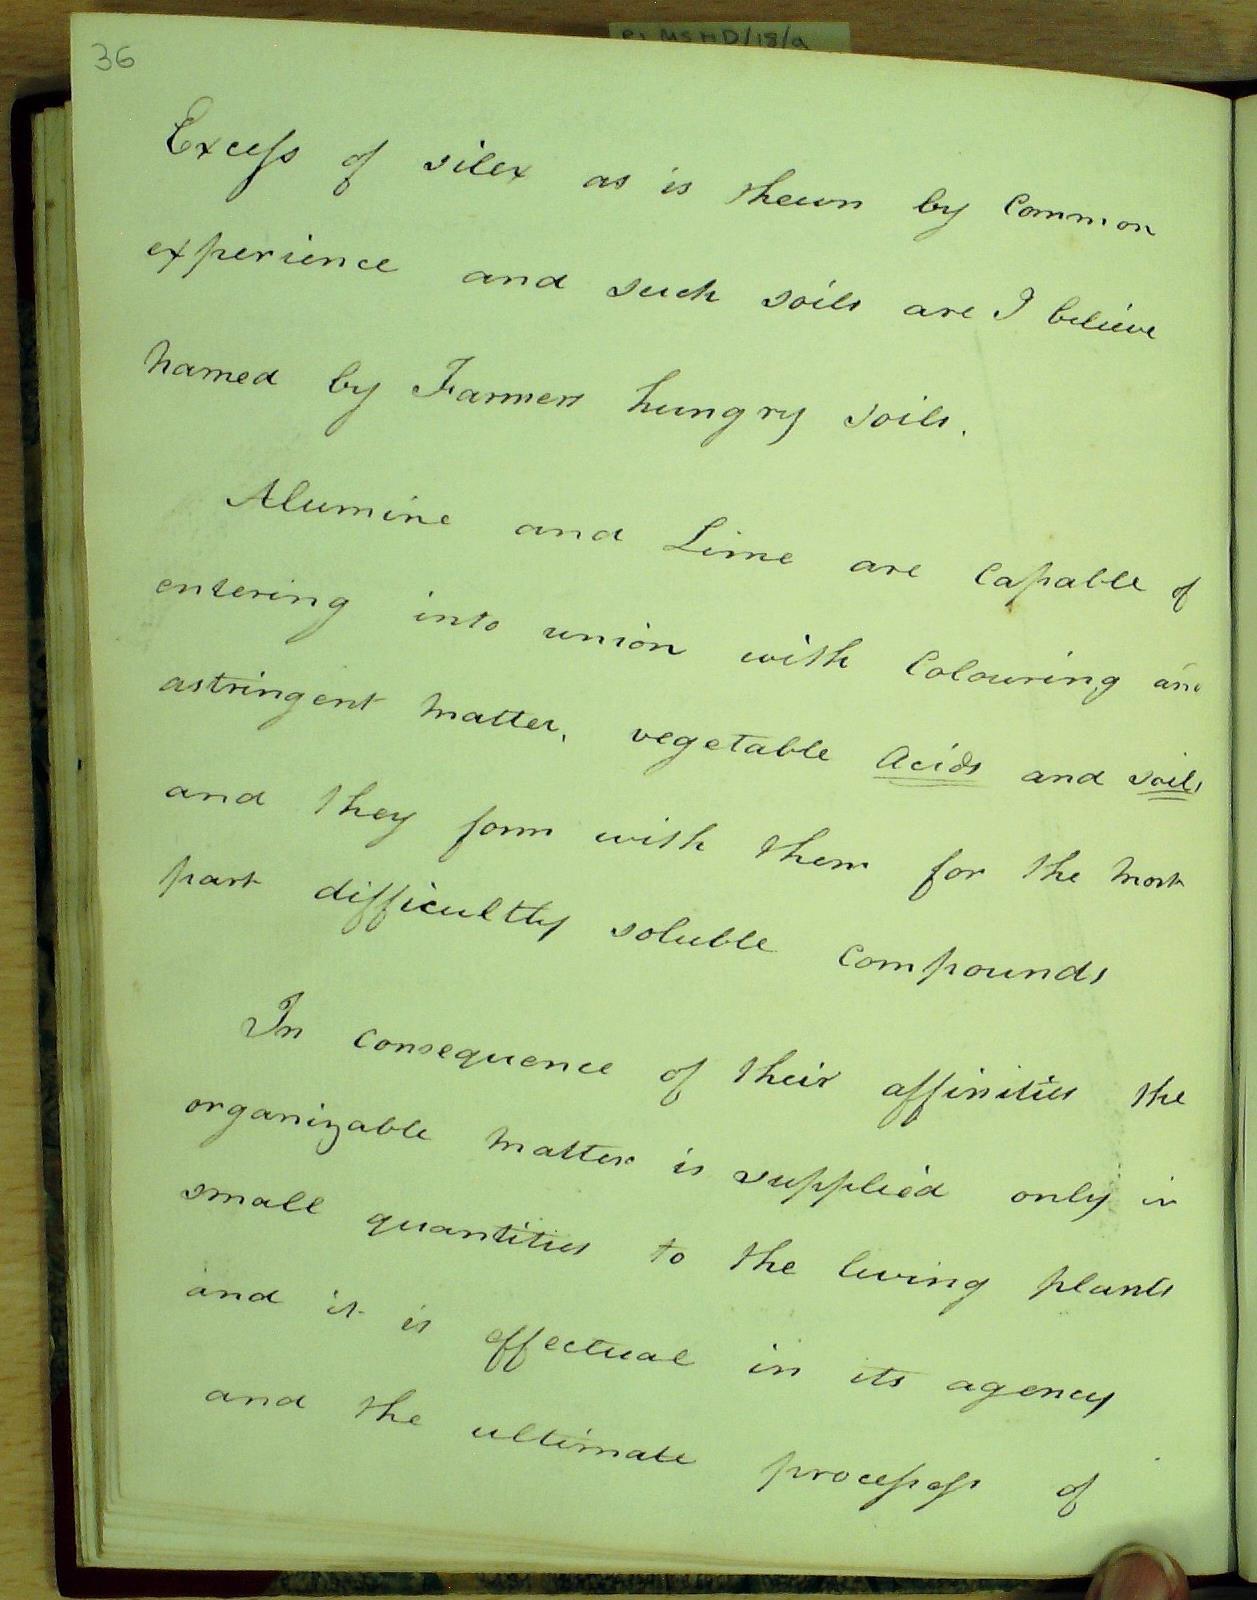 RI MS HD/18/a
36
Excess of silex as is shewn by Common
experience and such soils are I believe
named by Farmers hungry soils.
Alumine and Lime are Capable of
entering into union with Colouring and
astringent matter, vegetable Acids and soils
and they form with them for the most
part difficultly soluble Compounds
In consequence of their affinities the
organizable matter is supplied only in
small quantities to the living plants
and it is effectual in its agency
and the ultimate processess of